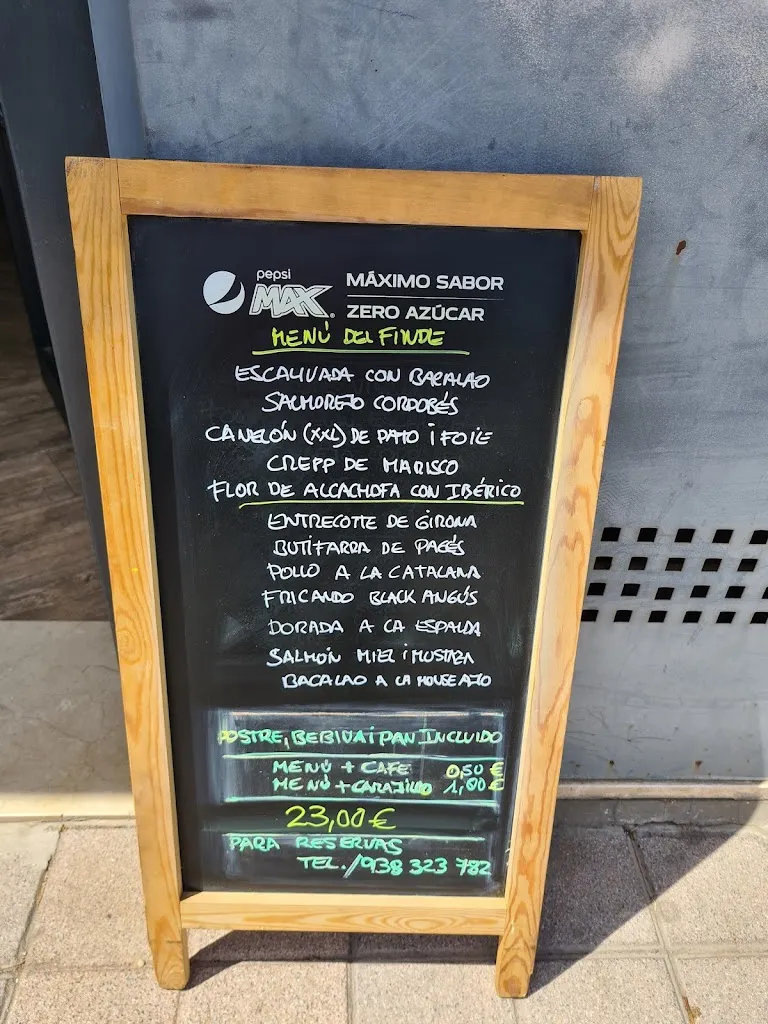 pepsi
MAX®
MÁXIMO SABOR
ZERO AZÚCAR
MENÚ DEL FINDE
ESCALIVADA CON BACALAO
SALMOREJO CORDOBÉS
CANELÓN (XXL) DE PATO I FOIE
CREPP DE MARISCO
FLOR DE ALCACHOFA CON IBÉRICO
ENTRECOTTE DE GIRONA
BUTIFARRA DE PAGÉS
POLLO A LA CATALANA
FRICANDO BLACK ANGÚS
DORADA A LA ESPALDA
SALMÓN MIEL I MOSTAZA
BACALAO A LA MOUSE AJO
POSTRE, BEBIDA I PAN INCLUIDO
MENÚ + CAFE 0,50 €
MENÚ + CARAJILLO 1,00 €
23,00 €
PARA RESERVAS
TEL./938 323 782